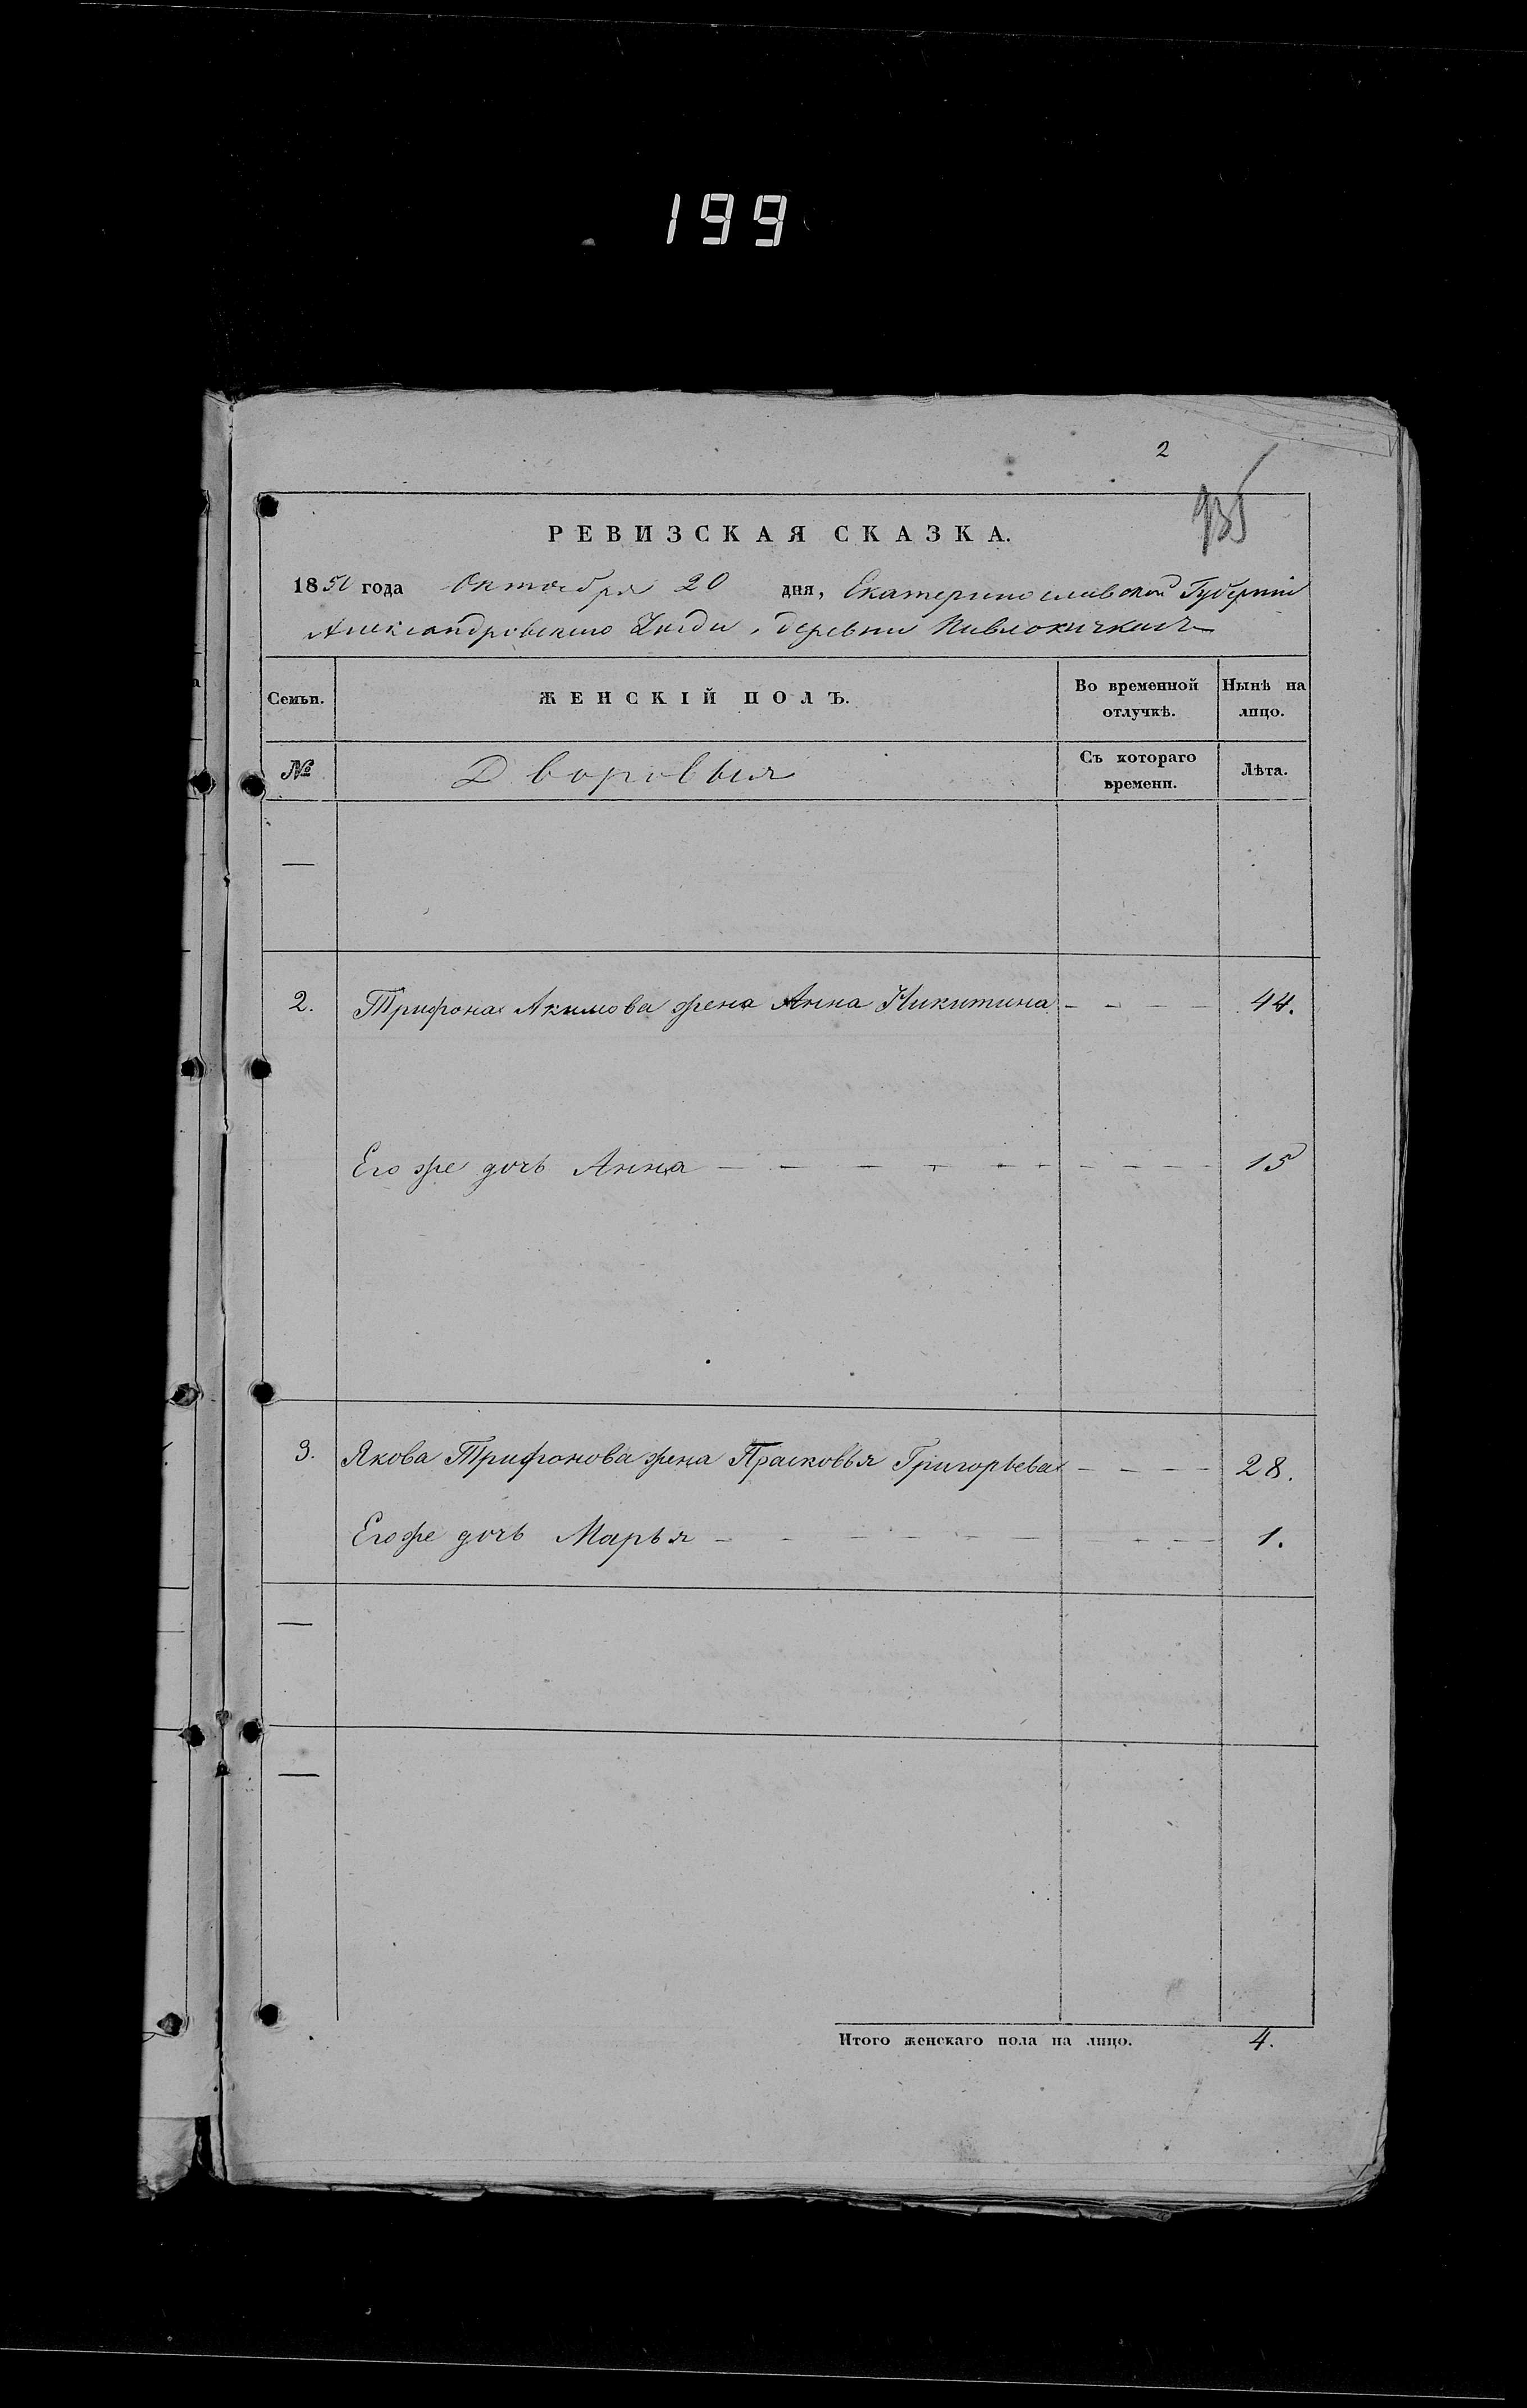 199
2
935
РЕВИЗСКАЯ СКАЗКА.
1850 года Октября 20 дня, Екатеринославской Губерніи
Александровскаго Уѣзда, деревни Павлокичкасъ
Семьи. ЖЕНСКІЙ ПОЛЪ. Во временной отлучкѣ. Нынѣ на лицо.
№ Дворовыя Съ котораго времени. Лѣта.
—
2. Трифона Акимова жена Анна Никитина - - - - 44.
Его же дочь Анна - - - - - - - - - - 15
3. Якова Трифонова жена Прасковья Григорьева - - - - 28.
Его же дочь Марья - - - - - - - - - - 1.
—
—
Итого женскаго пола на лицо. 4.